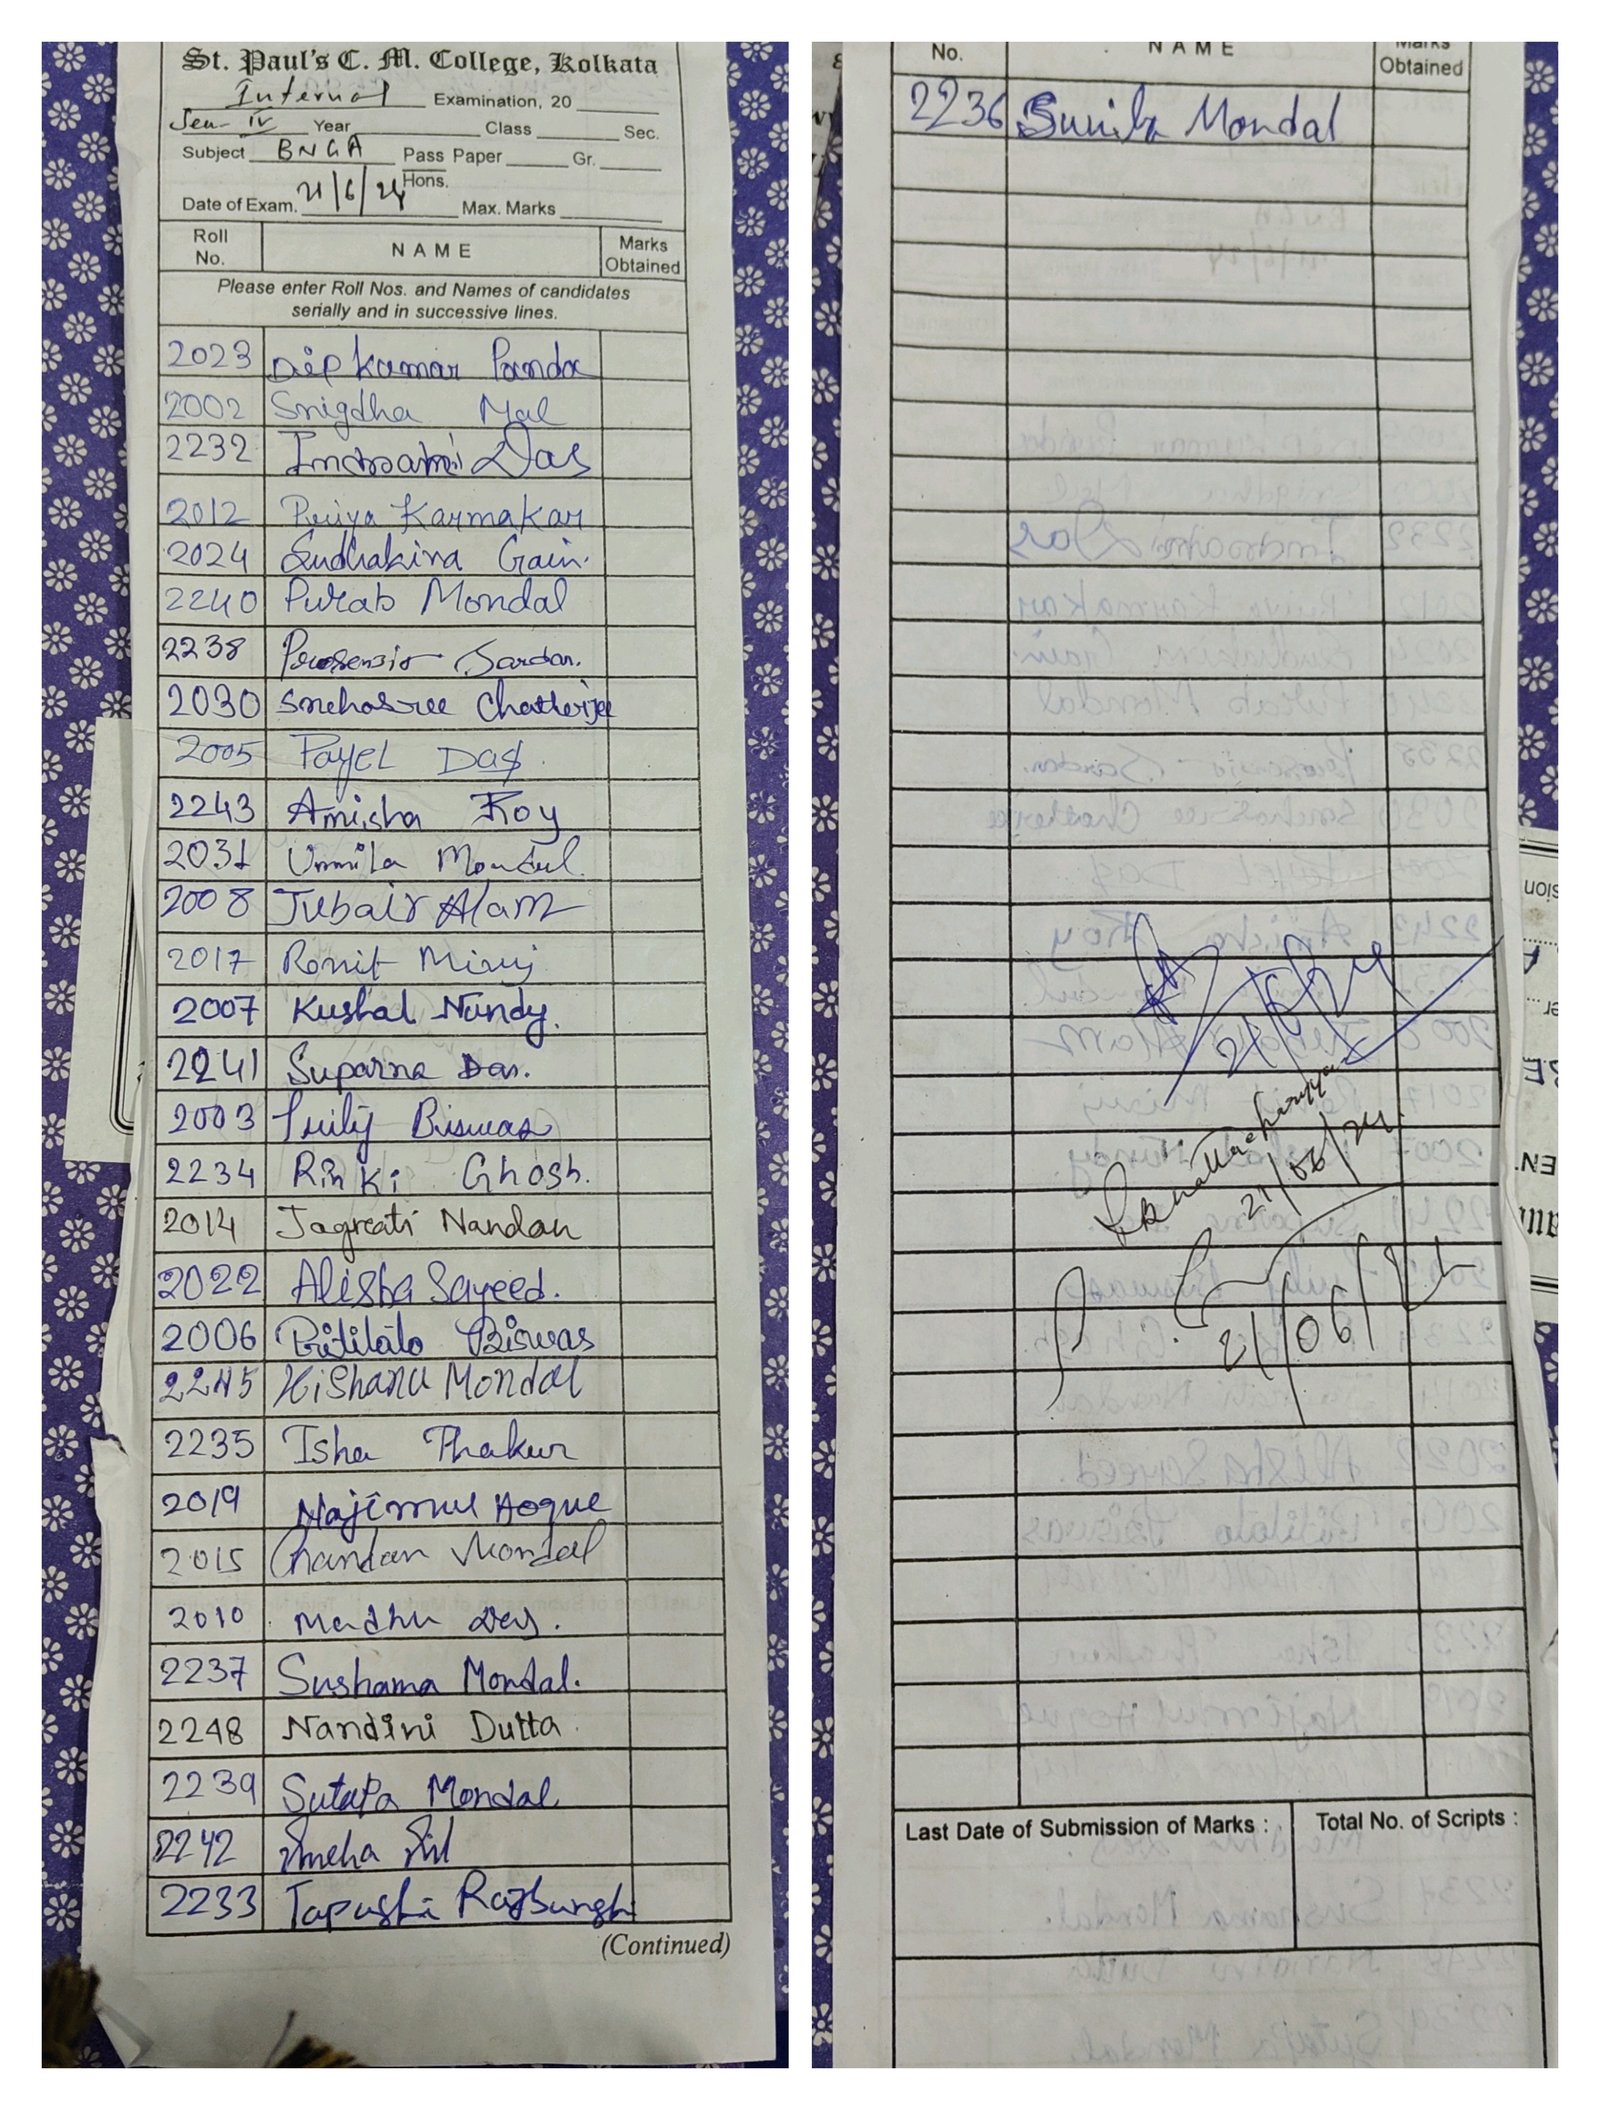 St. Paul's C. M. College, Kolkata
Internal Examination, 20
Sem- IV Year Class Sec.
Subject BNGA Pass Paper Gr.
Hons.
Date of Exam. 21/6/24 Max. Marks
Roll No. NAME Marks Obtained
Please enter Roll Nos. and Names of candidates
serially and in successive lines.
2023 Dipkumar Panda
2002 Snigdha Mal
2232 Indrani Das
2012 Priya Karmakar
2024 Sudhakina Gain.
2240 Purab Mondal
2238 Prosenjit Sardar.
2030 Snehasree Chatterjee
2005 Payel Das
2243 Amisha Roy
2031 Urmila Mondal
2008 Jubair Alam
2017 Ronit
2007 Kushal Nandy.
2241 Suparna Das.
2003 Biswas
2234 Rinki Ghosh.
2014 Jagreati Nandan
2022 Alisha Sayeed.
2006 Pritilata Biswas
2245 Mondal
2235 Isha Thakur
2019 Najimul Hoque
2015 Chandan Mondal
2010 Madhu Das.
2237 Sushama Mondal.
2248 Nandini Dutta
2239 Sutapa Mondal
2242 Sneha Sil
2233 Tapashi Rajbangshi
(Continued)
No. NAME Marks Obtained
2236 Sunita Mondal
21/6/24
Bhattacharyya
21/06/24.
21/06/24
Last Date of Submission of Marks : Total No. of Scripts :